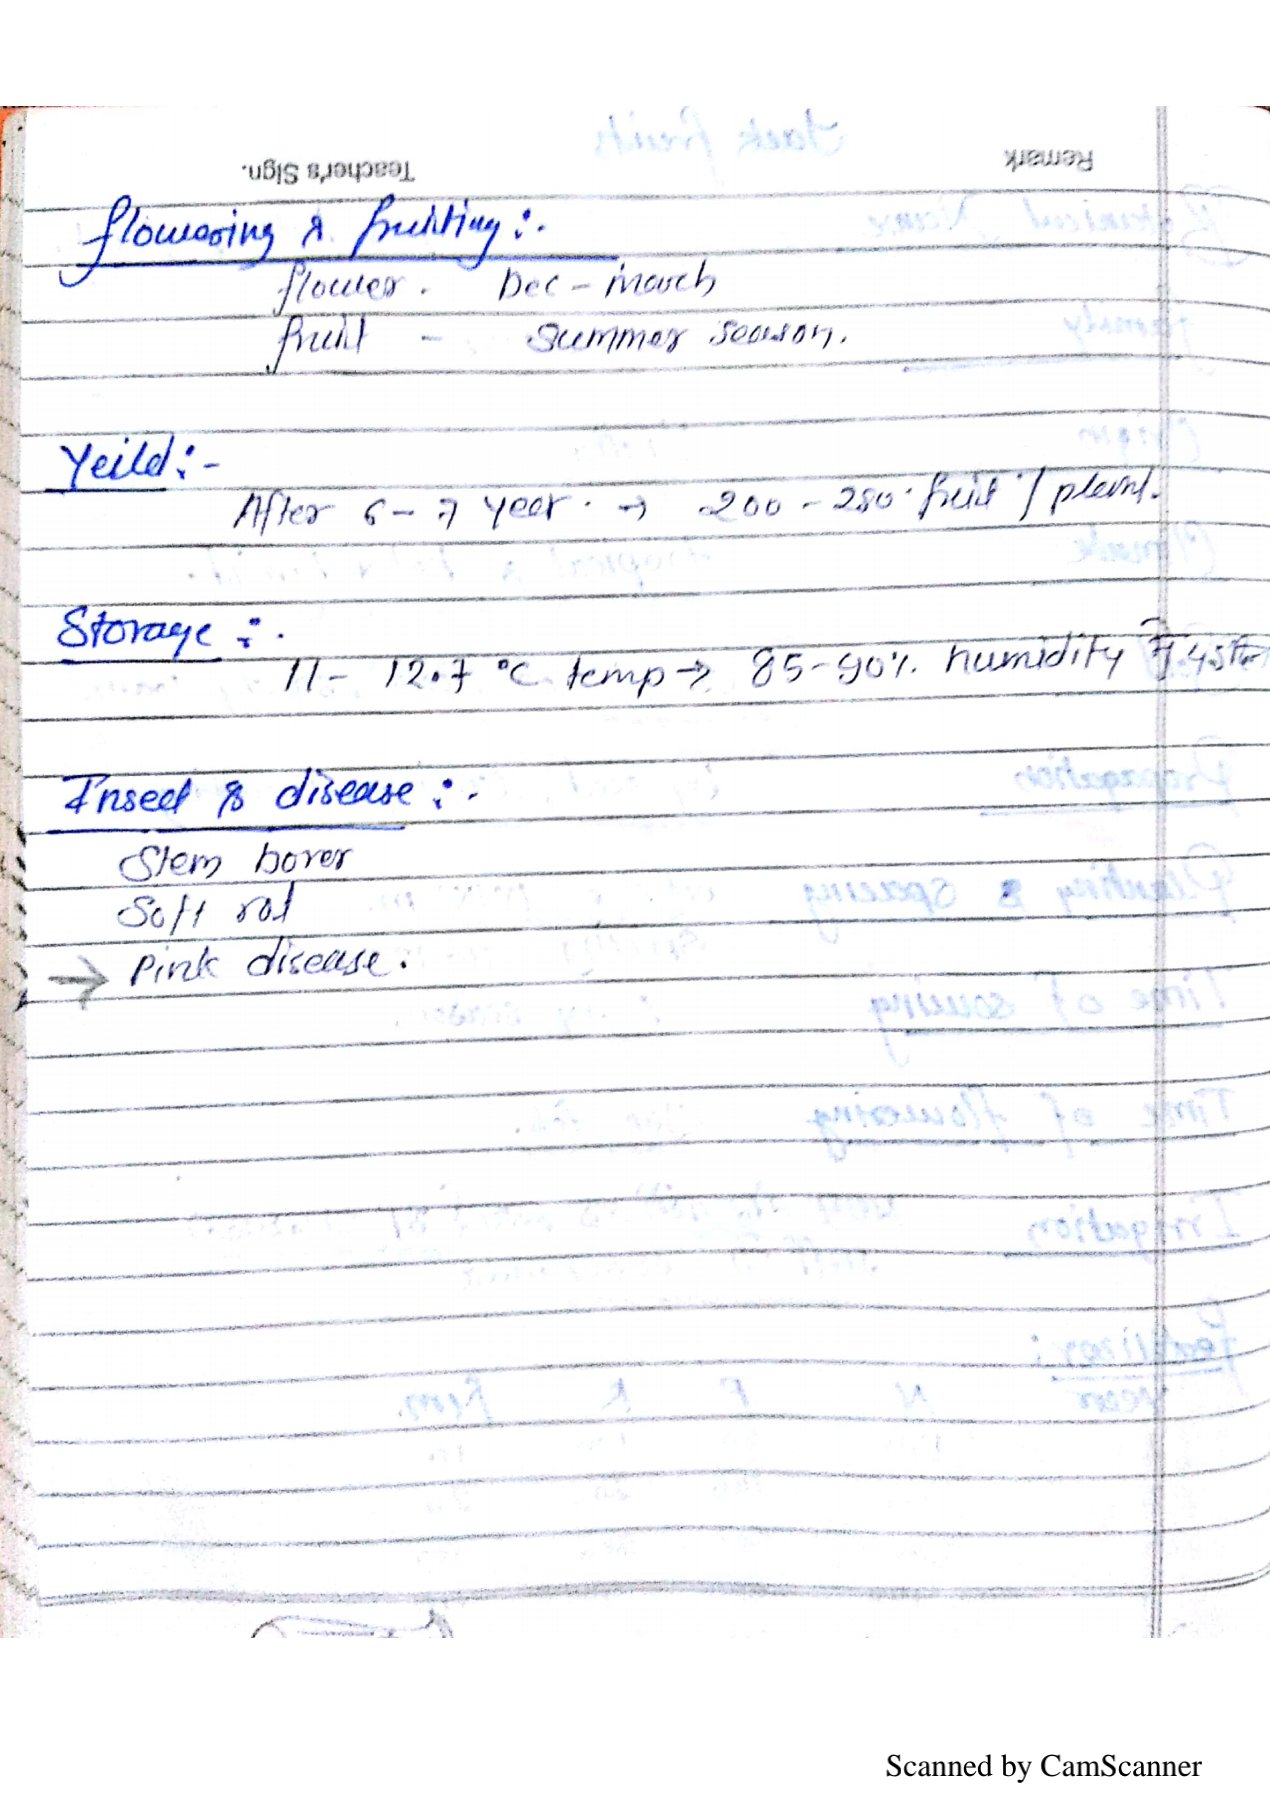 Remark
Teacher's Sign.
flowering & fruiting :-
flower - Dec - march
fruit - summer season.
Yeild :-
After 6 - 7 year → 200 - 250 fruit / plant.
Storage :-
11 - 12.7 °C temp → 85-90% humidity
Insect & disease :-
Stem borer
Soft rot
→ Pink disease.
Scanned by CamScanner